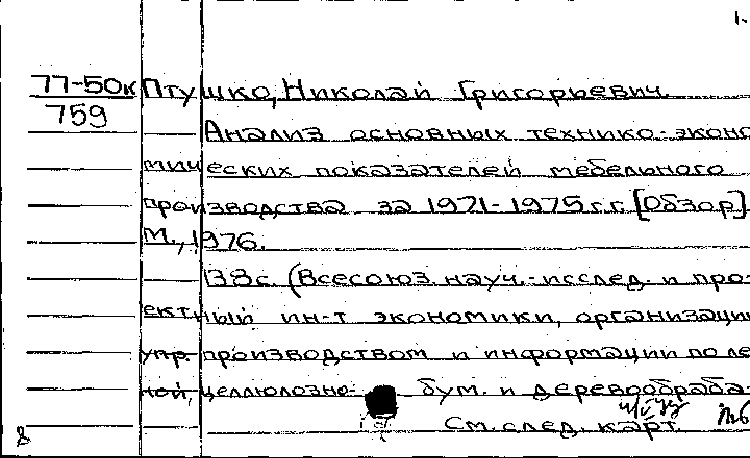 1.
77-50к Птушко, Николай Григорьевич.
759
Анализ основных технико-эконо
мических показателей мебельного
производства за 1971-1975 г.г. [Обзор]
М., 1976.
138 с. (Всесоюз. науч.-исслед. и про-
ектный ин-т экономики, организации
упр. производством и информации по лес
ной, целлюлозно- бум. и деревообраба-
См. след. карт.
8